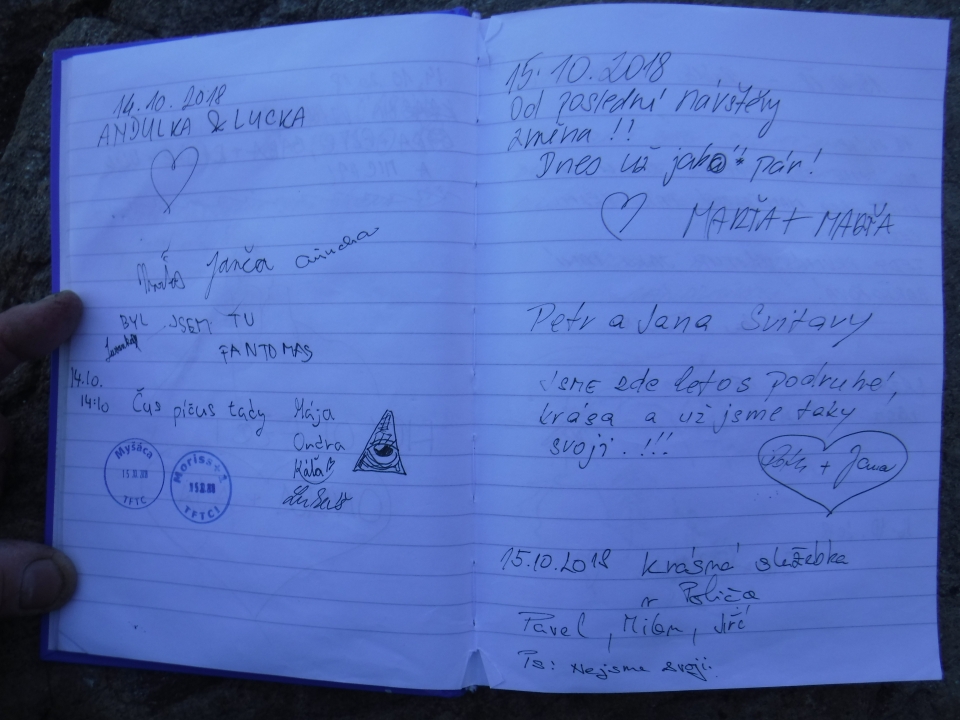 14.10. 2018
ANDULKA & LUCKA
Janča
BYL JSEM TU
FANTOMAS
14.10.
14:10 Čus píčus tady Mája
Ondra
Káťa
Myšáca
TFTC
Moriss
TFTC!
15.10.2018
Od poslední návštěvy
změna!!
Dnes už jako pár!
MARŤA + MARŤA
Petr a Jana Svitavy
Jsme zde letos podruhé,
krása a už jsme taky
svoji.!!!
+ Jana
15.10.2018 Krásná služebka
Polička
Pavel, Milan, Jiří
Ps: Nejsme svoji.